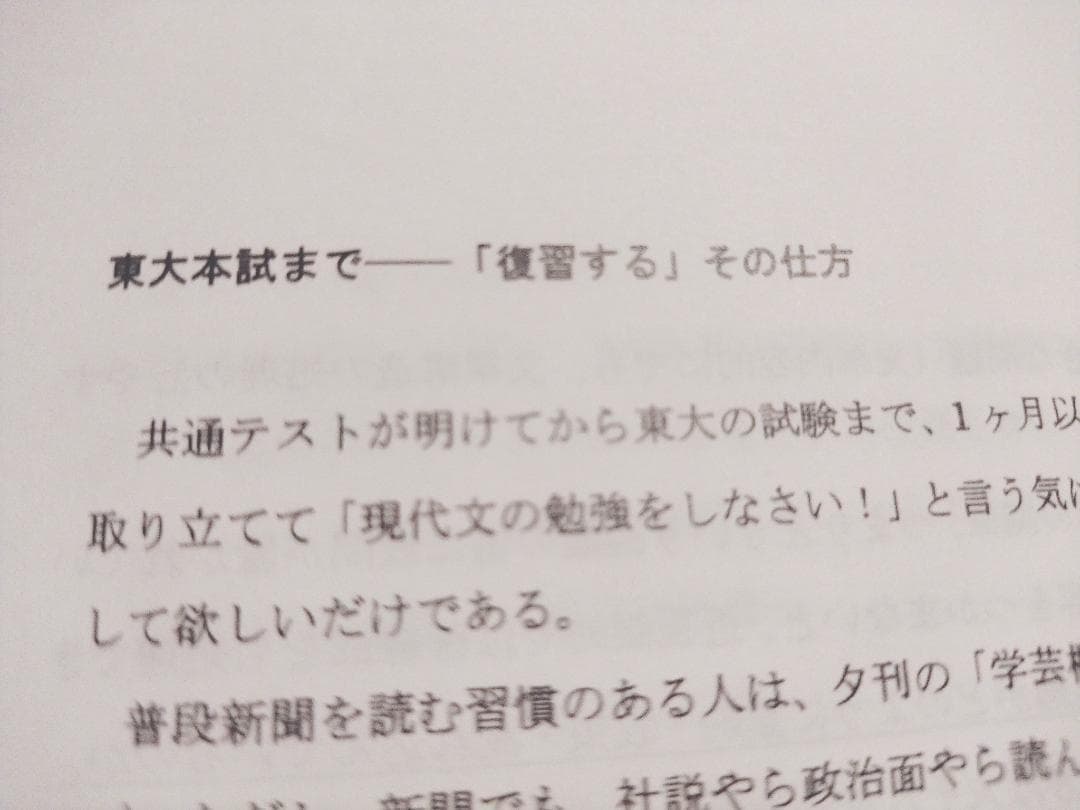 東大本試まで――「復習する」その仕方
共通テストが明けてから東大の試験まで、1ヶ月以
取り立てて「現代文の勉強をしなさい！」と言う気に
して欲しいだけである。
普段新聞を読む習慣のある人は、夕刊の「学芸
新聞でも、社説やら政治面やら読ん